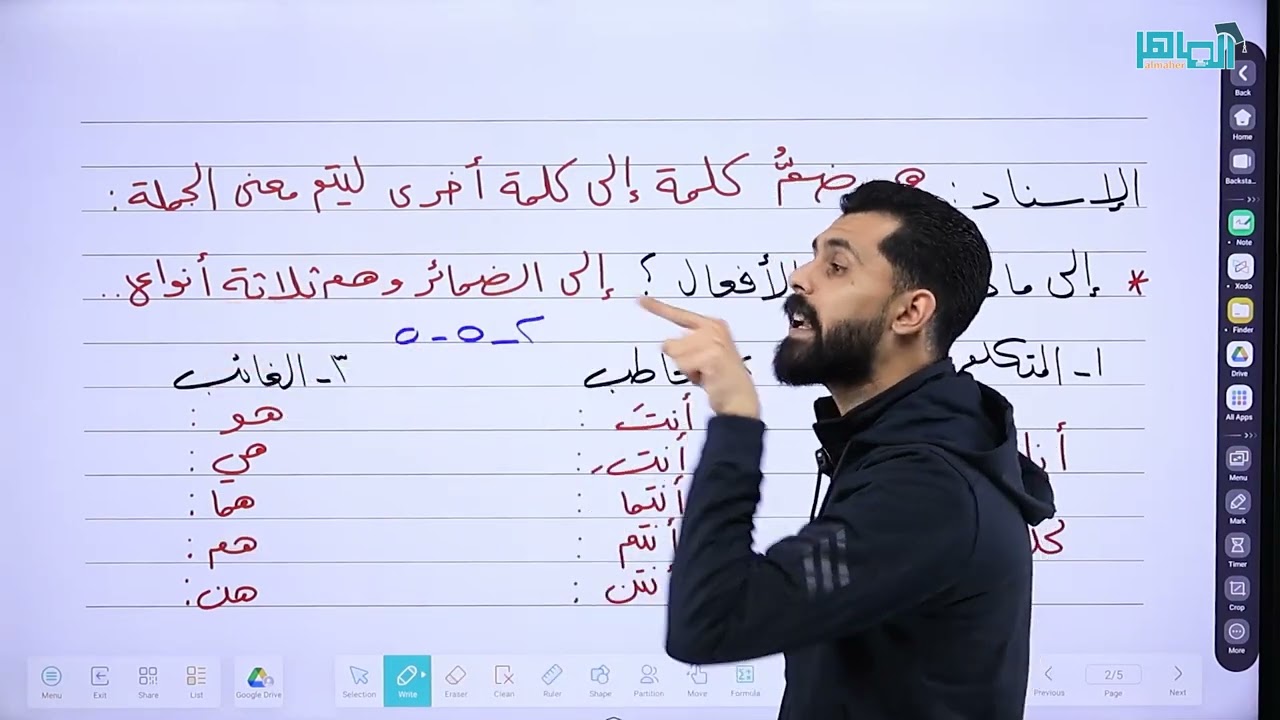 الماهر
almaher
الإسناد: هو ضمُّ كلمة إلى كلمة أخرى ليتم معنى الجملة:
* إلى ماذا الأفعال؟ إلى الضمائر وهم ثلاثة أنواع..
٢ - ٥ - ٥
١- المتكلم
٣- الغائب
أنا
أنتَ :
هو :
أنتِ :
هي :
أنتما :
هما :
أنتم :
هم :
أنتن :
هن :
Back
Home
Backsta...
Note
Xodo
Finder
Drive
All Apps
Menu
Mark
Timer
Crop
More
Menu
Exit
Share
List
Google Drive
Selection
Write
Eraser
Clean
Ruler
Shape
Partition
Move
Formula
Previous
2/5
Page
Next